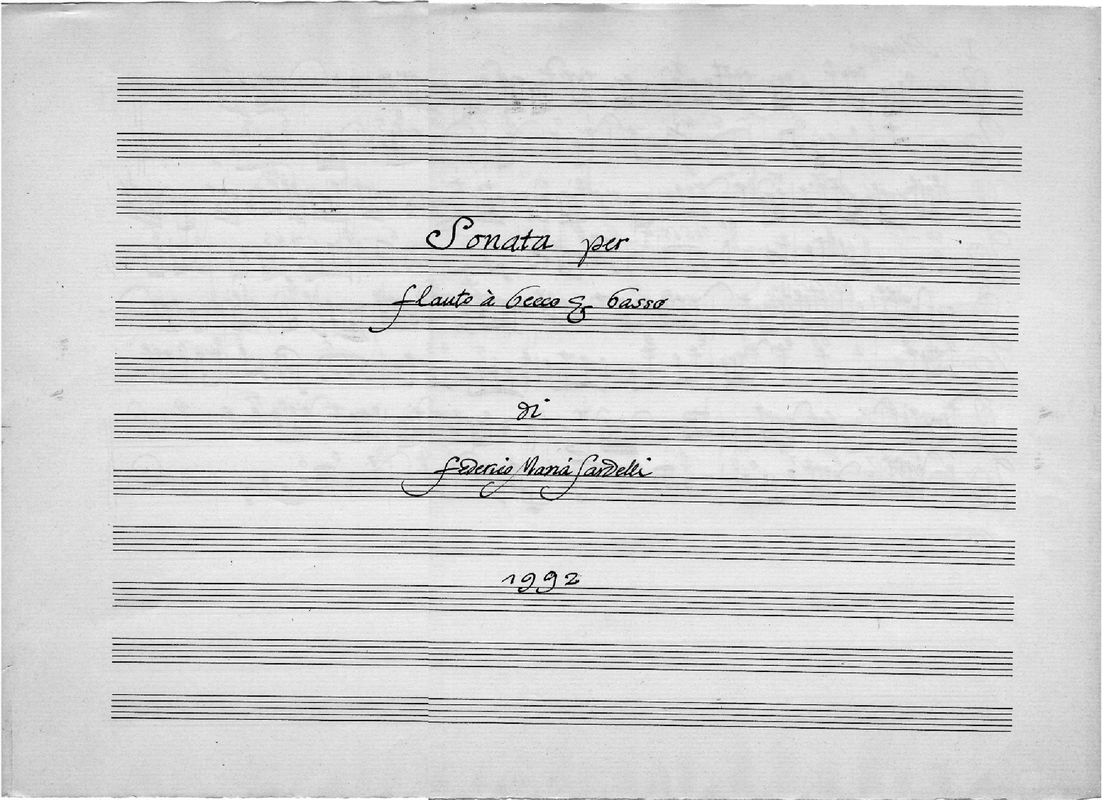 Sonata per
flauto à becco & basso
di
Federico Maria Sardelli
1992